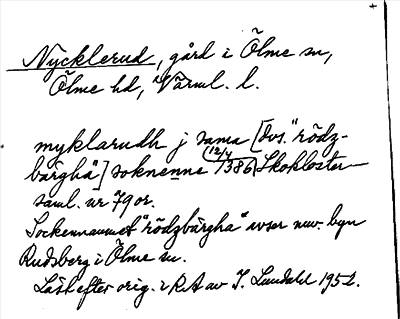 Nycklerud, gård i Ölme sn,
Ölme hd, Värml. l.
myklarudh j sama [dvs. "rödz-
bärgha"] soknenne 12/4 1386 Skokloster-
saml. nr 79 or.
Sockennamnet "rödzbärgha" avser nuv. byn
Rudsberg i Ölme sn.
Läst efter orig. i RA av I. Lundahl 1952.